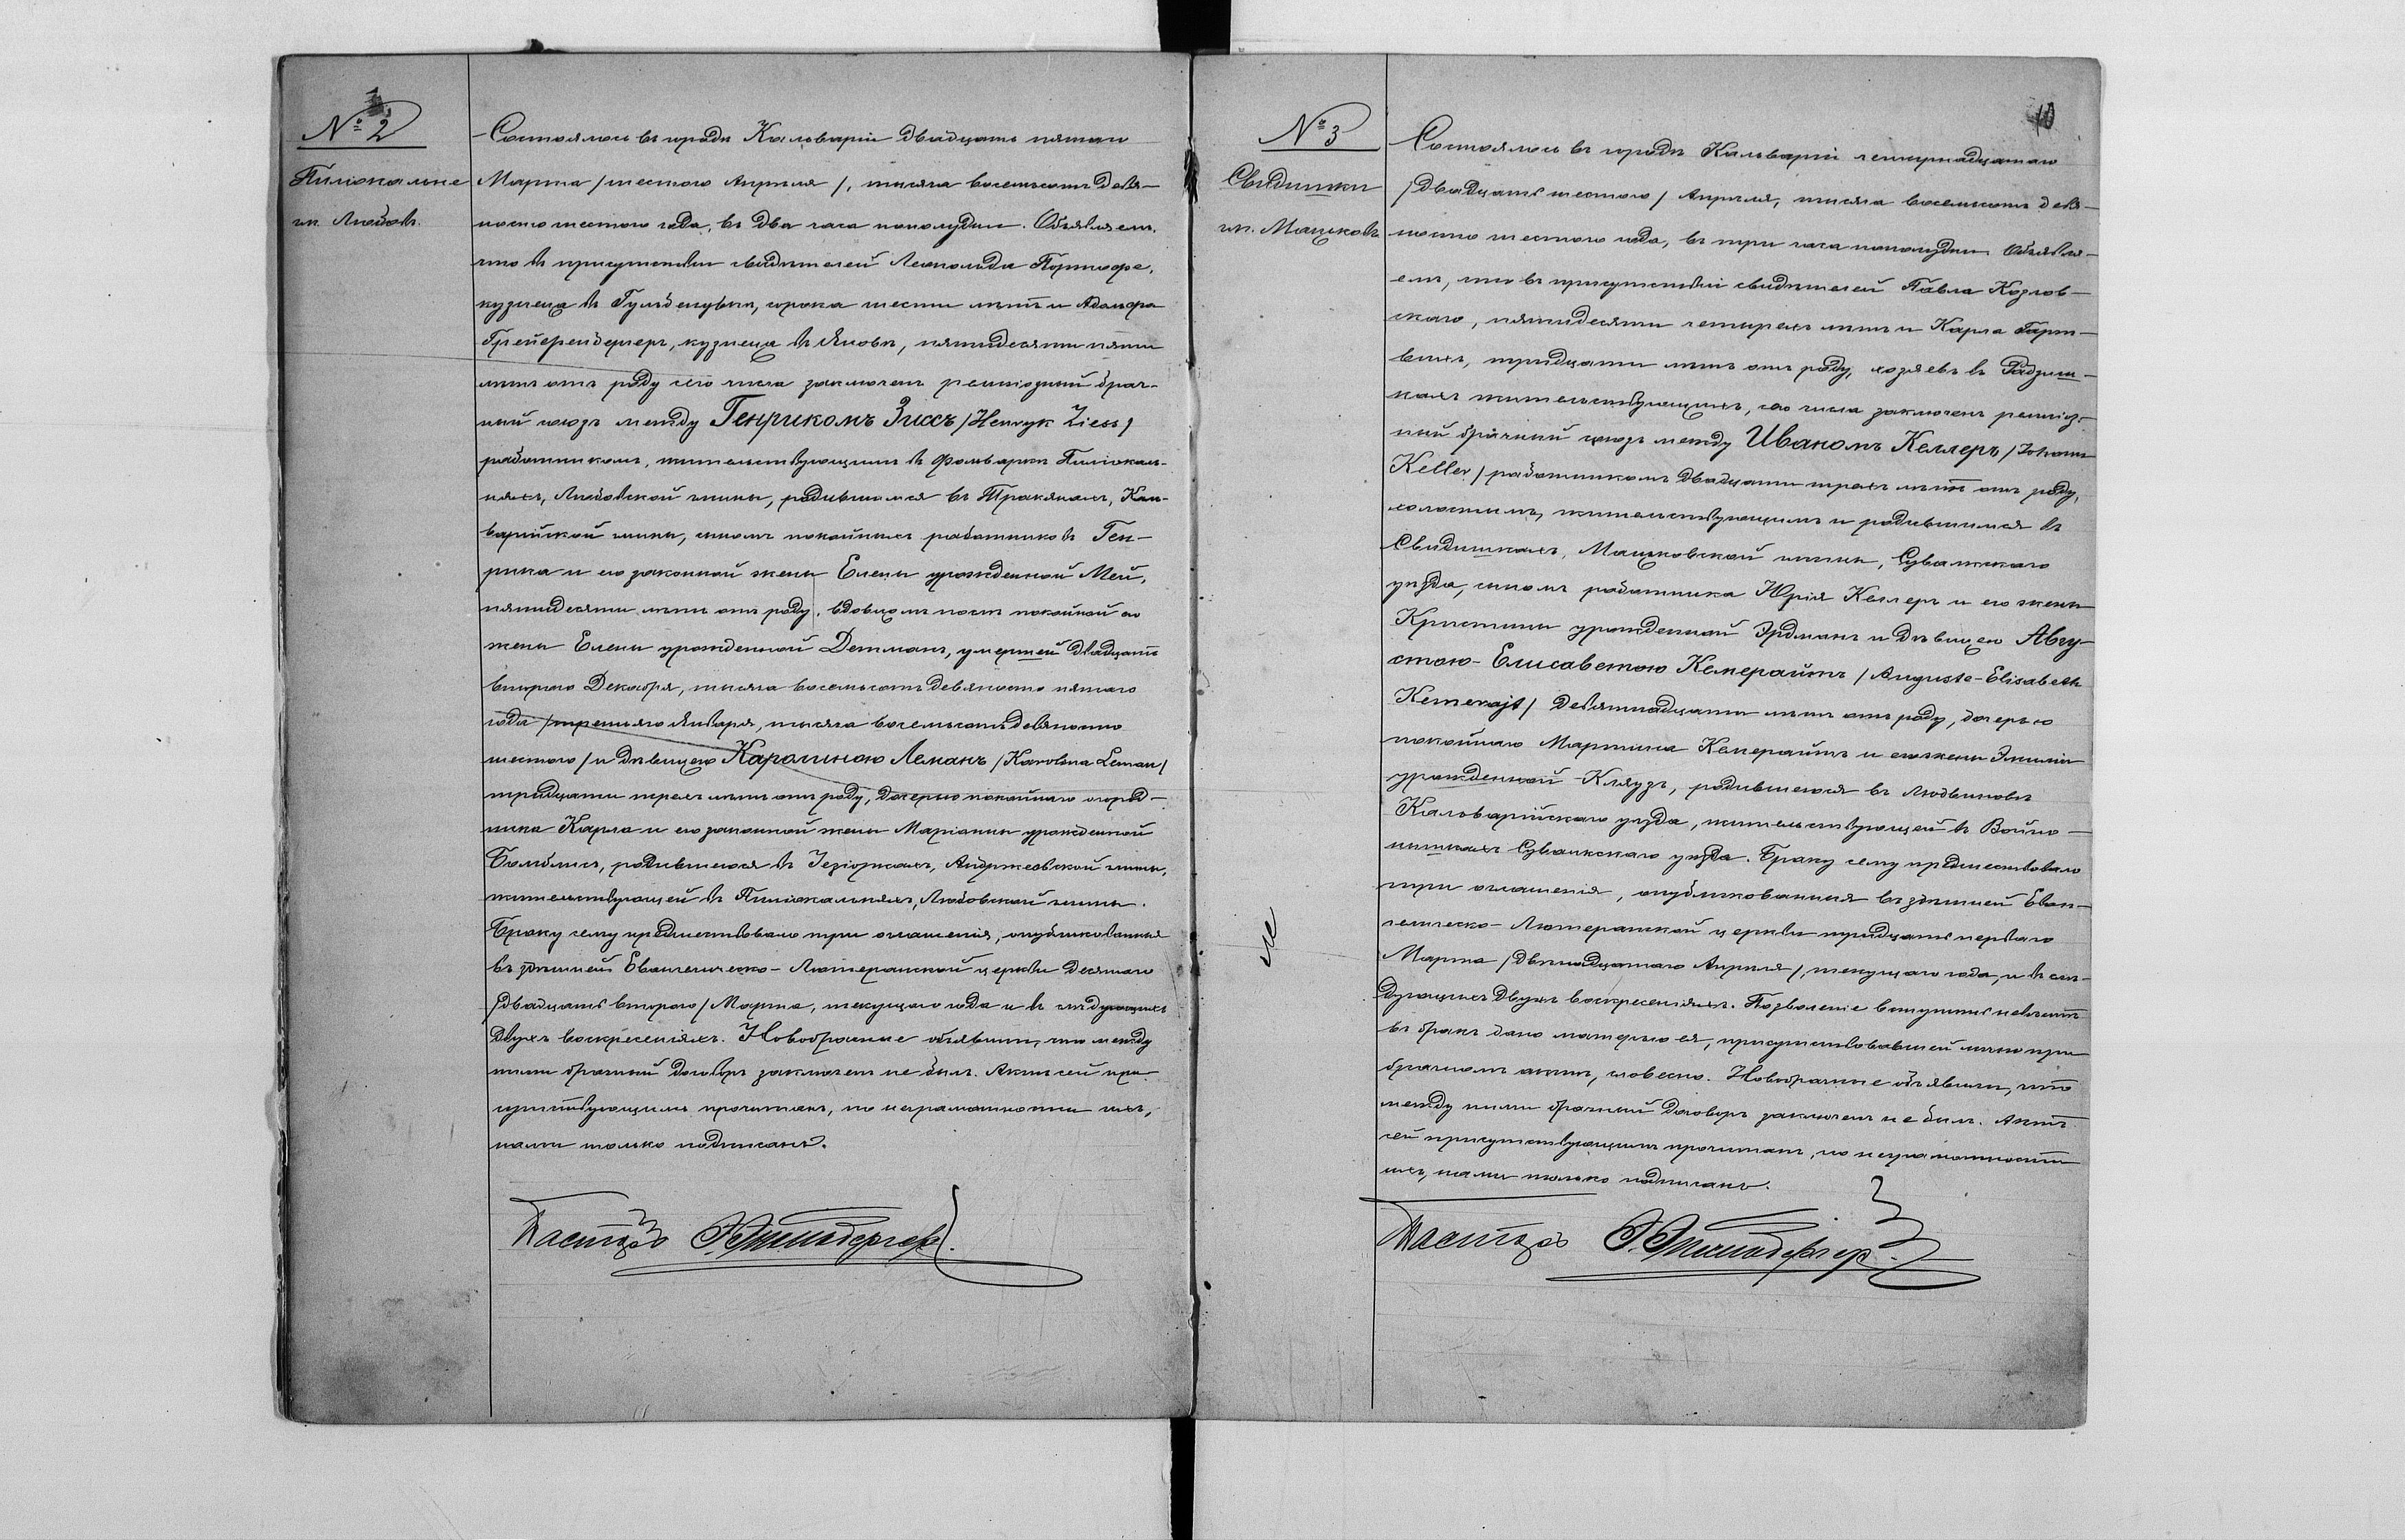 № 2
Пиліокальне
гм. Любовъ.
Состоялось въ городѣ Кальваріи двадцать пятаго
Марта /шестого Апрѣля/, тысяча восемьсотъ девя-
носто шестого года, въ два часа пополудни. Объявляемъ,
что въ присутствіи свидѣтелей Леопольда
кузнеца въ сорока шести лѣтъ и Адольфа
кузнеца въ Яновѣ, пятидесяти пяти
лѣтъ отъ роду сего числа заключенъ религіозный брач-
ный союзъ между Генрикомъ Зиссъ /Henryk Ziess/
работникомъ, жительствующимъ въ фольваркѣ Пиліокаль-
няхъ, Любовской гмины, родившимся въ Тракянахъ, Кал-
варійской гмины, сыномъ покойныхъ работниковъ Ген-
рика и его законной жены Елены урожденной Мей,
пятидесяти лѣтъ отъ роду, вдовцомъ послѣ покойной его
жены Елены урожденной Детманъ, умершей двадцать
второго Декабря, тысяча восемьсотъ девяносто пятаго
года /третьяго Января, тысяча восемьсотъ девяносто
шестого/ и дѣвицею Каролиною Леманъ /Karolina Leman/
тридцати трехъ лѣтъ отъ роду, дочерью покойнаго огород-
ника Карла и его законной жены Маріанны урожденной
родившеюся въ Езіоркахъ, Андржеевской гмины,
жительствующей въ Пиліокальняхъ, Любовской гмины.
Браку сему предшествовало три оглашенія, опубликованныя
въ здѣшней Евангелическо-Лютеранской церкви десятаго
/двадцать второго/ Марта, текущаго года и въ слѣдующихъ
двухъ воскресеніяхъ. Новобрачные объявили, что между
ними брачный договоръ заключенъ не былъ. Актъ сей при-
сутствующимъ прочитанъ, по неграмотности ихъ,
нами только подписанъ.
Пасторъ
10
№ 3
Свидишки
гм. Мацковъ
Состоялось въ городѣ Кальваріи четырнадцатаго
/двадцать шестого/ Апрѣля, тысяча восемьсотъ девя-
носто шестого года, въ три часа пополудни. Объявля-
емъ, что въ присутствіи свидѣтелей Павла Козлов-
скаго, пятидесяти четырехъ лѣтъ и Карла Гарт-
вихъ, тридцати лѣтъ отъ роду, хозяевъ въ Радзиш-
кахъ жительствующихъ, сего числа заключенъ религіоз-
ный брачный союзъ между Иваномъ Келлеръ /Johann
Keller/ работникомъ двадцати трехъ лѣтъ отъ роду,
холостымъ, жительствующимъ и родившимся въ
Свидишкахъ, Мацковской гмины, Сувалкскаго
уѣзда, сыномъ работника Юрія Келлеръ и его жены
Кристины урожденной Эрдманъ и дѣвицею Авгу-
стою-Елисаветою Кемерайтъ /Auguste-Elisabeth
Kemerajt/ девятнадцати лѣтъ отъ роду, дочерью
покойнаго Мартина Кемерайтъ и его жены Эмиліи
урожденной Кляудъ, родившеюся въ Людвиновѣ
Кальварійскаго уѣзда, жительствующей въ Войпо-
нишкахъ Сувалкскаго уѣзда. Браку сему предшествовало
три оглашенія, опубликованныя въ здѣшней Еван-
гелическо-Лютеранской церкви тридцать перваго
Марта /двѣнадцатаго Апрѣля/, текущаго года, и въ слѣ-
дующихъ двухъ воскресеніяхъ. Позволеніе вступить невѣстѣ
въ бракъ дано матерью ея, присутствовавшей лично при
брачномъ актѣ, словесно. Новобрачные объявили, что
между ними брачный договоръ заключенъ не былъ. Актъ
сей присутствующимъ прочитанъ, по неграмотности
ихъ, нами только подписанъ.
Пасторъ